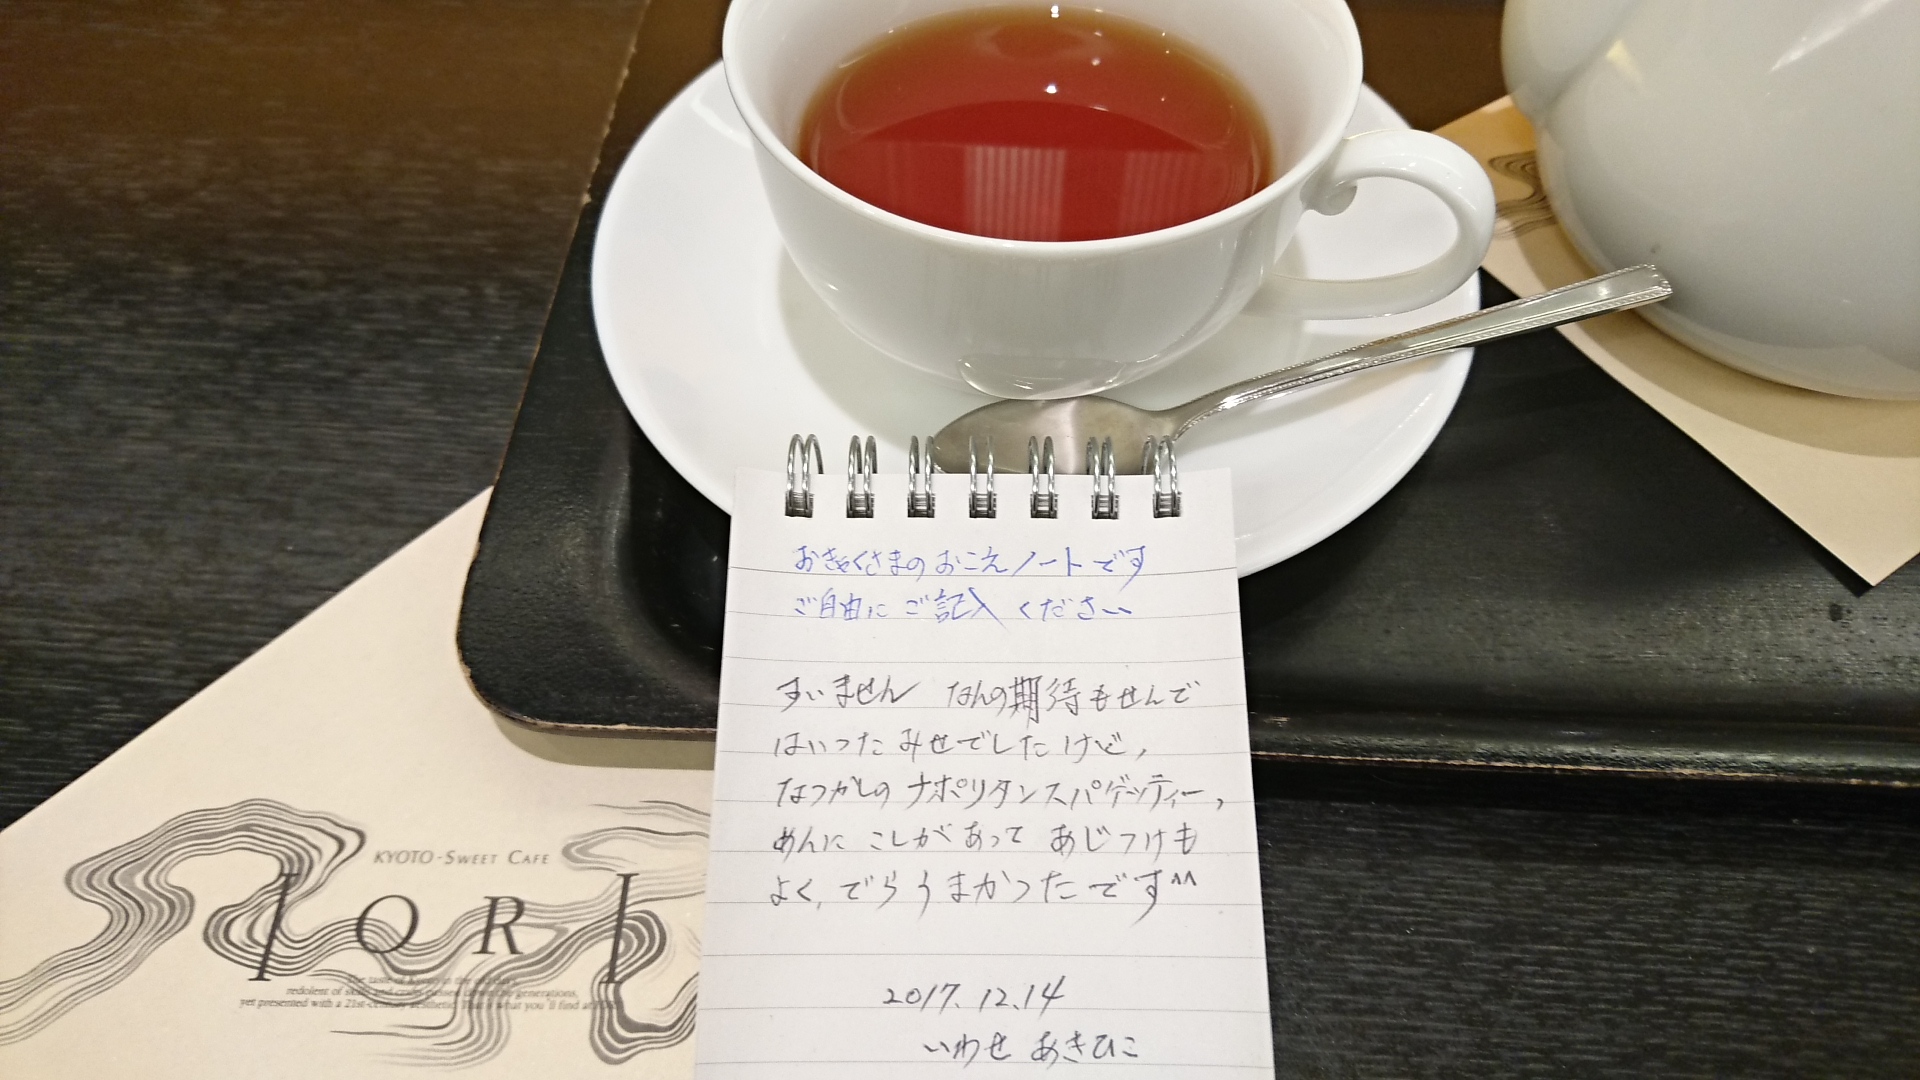 おきゃくさまのおこえノートです
ご自由にご記入ください
すいません なんの期待もせんで
はいったみせでしたけど,
なつかしのナポリタンスパゲッティー,
めんにこしがあってあじつけも
よく,でらうまかったです^^
2017.12.14
いわせ あきひこ
KYOTO-SWEET CAFE
IORI
The taste of
redolent of generations,
yet presented with a 21st-century aesthetic. That's what you'll find at